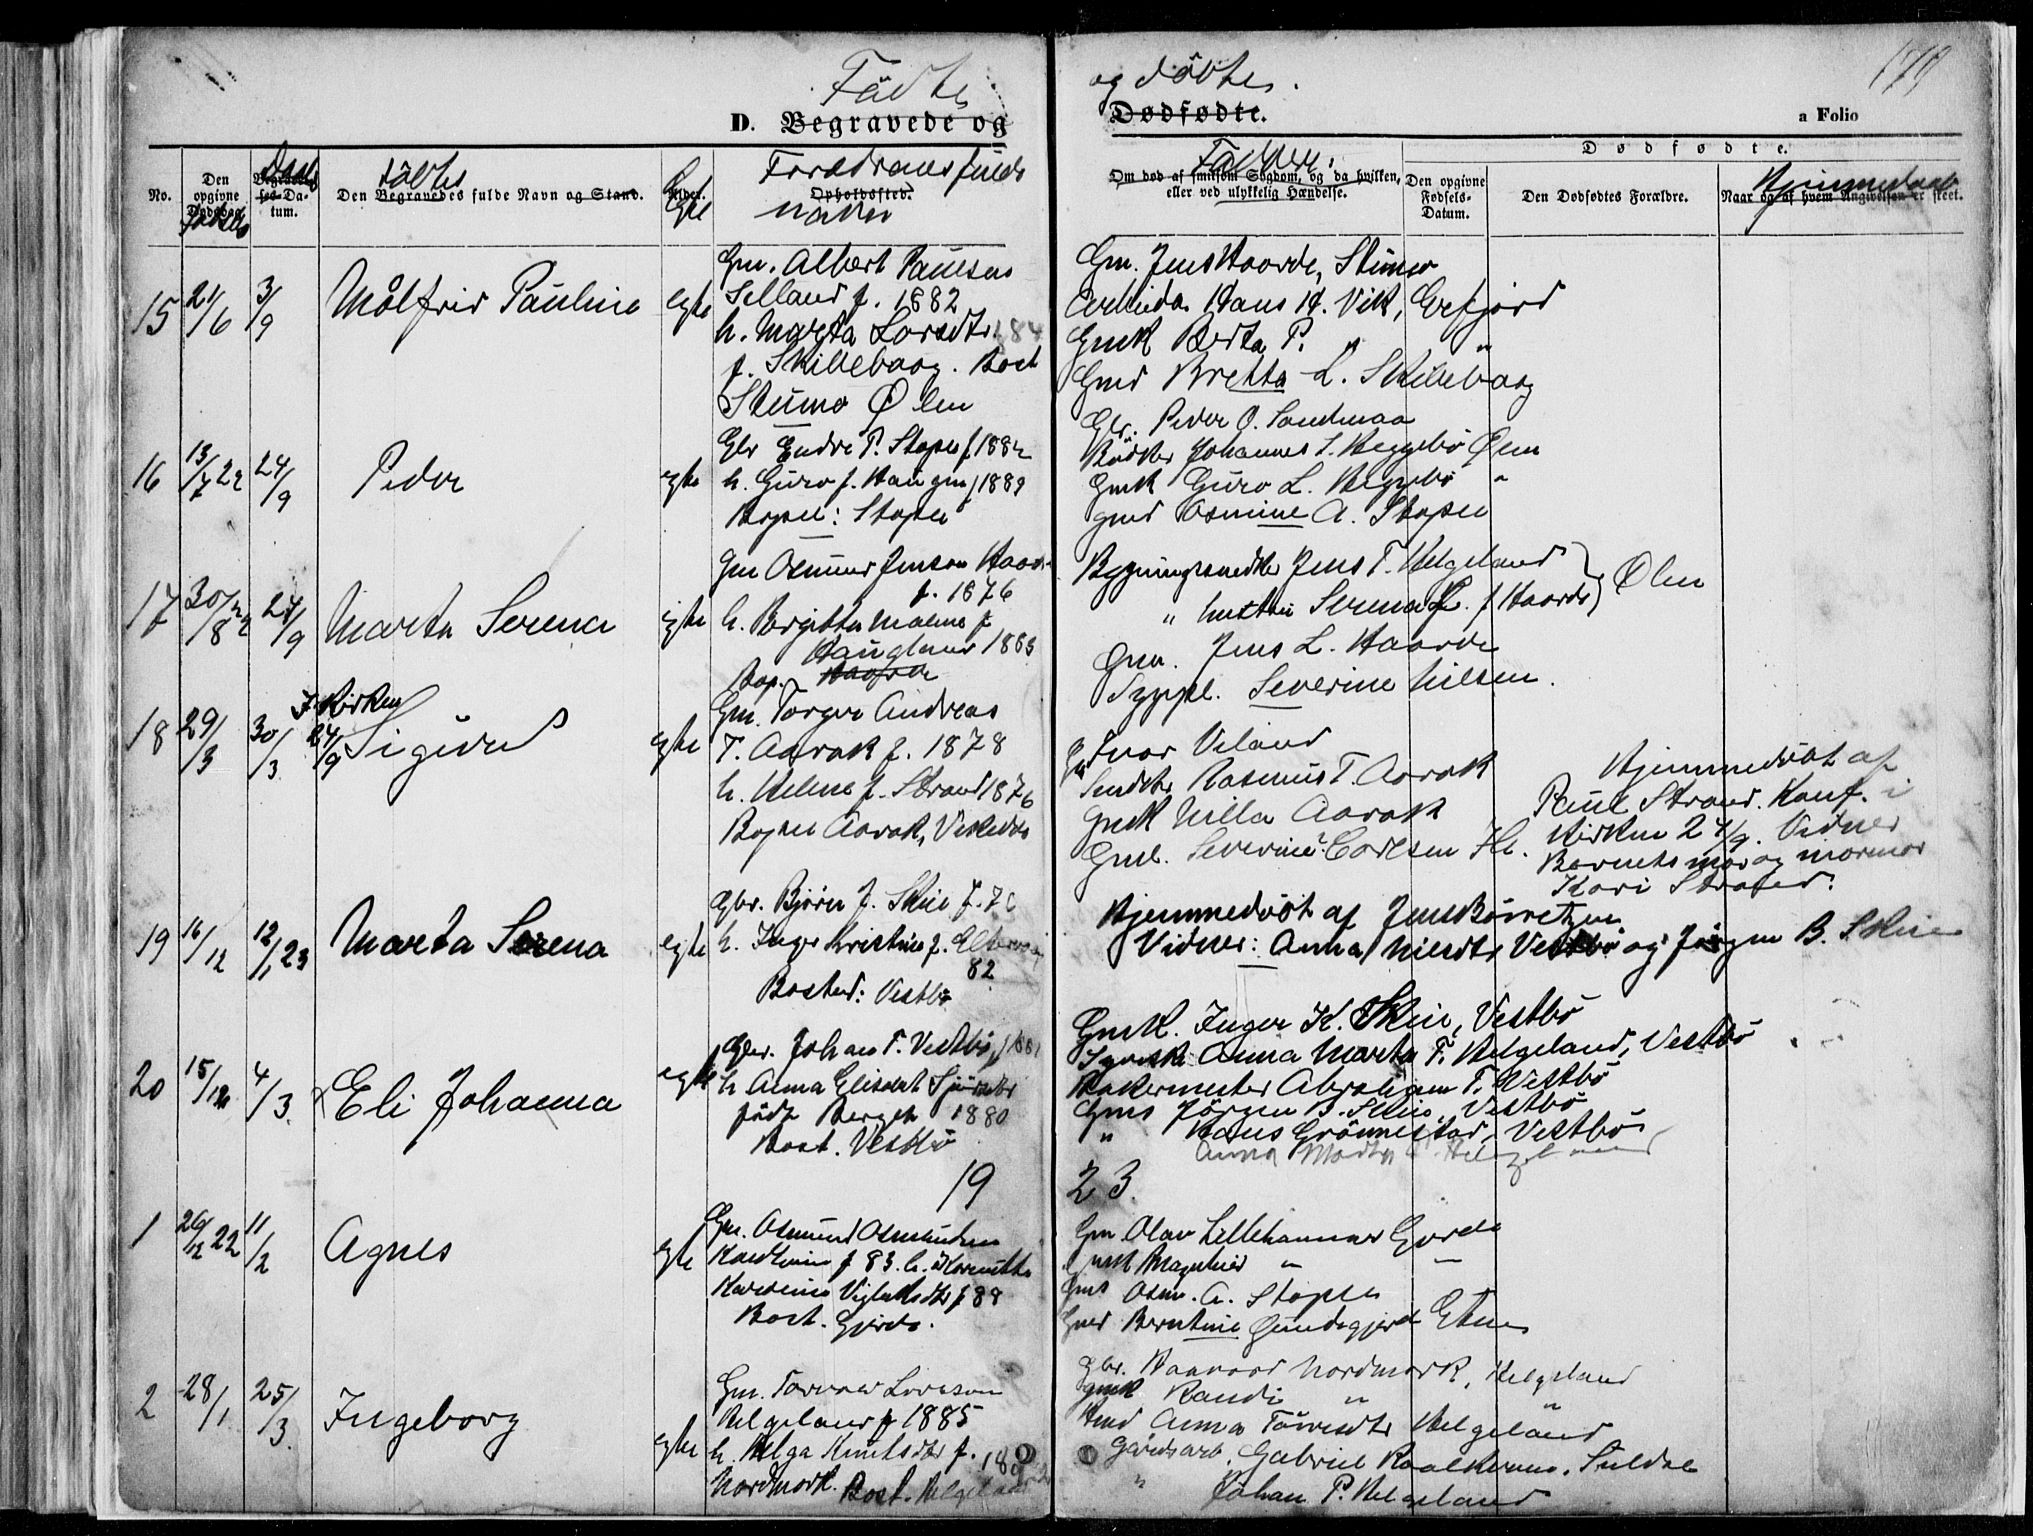 Fødte og døbte.
179
D. Begravede og Dødfødte.
a Folio
No.
Den opgivne Dødsdag
Fødsels
Begravelses-Datum.
Daabs
Den Begravedes fulde Navn og Stand.
døbtes
Alder.
Egte
Opholdssted.
Forældrenes fulde
navn
Om død af smitsom Sygdom, og da hvilken, eller ved ulykkelig Hændelse.
Faddere.
Dødfødte.
Den opgivne Fødsels-Datum.
Den Dødfødtes Forældre.
Naar og af hvem Angivelsen er skeet.
Hjemmedaab
15 21/6 3/9 Målfrid Pauline egte
Gm. Albert Paulsen
Selland f. 1882
h. Marta Larsdtr. 84
f. Skibebaag. Bost
Stumo Ølen
Gm. Jens Haarde, Stumo
Hans H. Vik, Erfjord
Gmk Berta P. "
Gmd Bretha L. Skibebaag
16 13/7 22 24/9 Peder egte
Gbr Endre P. Stople f. 1882
h. Guro f. Haugen f 1889
Bopæl: Stople
Gbr. Peder O. Sandmaa
Bødker Johannes S. Heggebø Ølen
Gmk Guro L. Heggebø "
gmd Osmine A. Stople
17 30/8 22 24/9 Marta Serena egte
Gm Osmund Jenson Haarde
f. 1876
h. Bergitta Malene f
Haugland 1883
Bop. Haarde
Bygningssnedker Jens T. Helgeland
" hustru Serena J. f Haarde } Ølen
Gm. Jens L. Haarde
Sypge. Severine Nilsen.
18 29/3 30/3 I Kirken 24/9 Sigurd egte
Gm. Torger Andreas
T. Aarak f. 1878
h. Helene f. Strand 1876
Bopæl Aarak, Vikedal
Gm Ivar Viland
Snedker Rasmus T. Aarak
gmk Nilla Aarak
Gmd. Severine Carlsen
Hjemmedøbt af
Paul Strand. Konf. i
Kirken 24/9. Vidner
Barnets mor og mormor
Kari Strand.
19 16/12 12/1 23 Marta Serena egte
Gbr. Bjørn J. Skie f. 76
h. Inger Kristine f.
82
Bosted: Vestbø
Hjemmedøbt af Jens Børretzen
Vidner: Anna Nilsdtr Vestbø og Jørgen B. Skie
Gmk. Inger K. Skie, Vestbø
20 15/12 4/3 Eli Johanna egte
Gbr. Johan T. Vestbø, f 1881
h Anna Elisabet
født Berge 1880
Bost. Vestbø
Anna Marta T. Helgeland, Vestbø
Bakermester Abraham T. Vestbø
Gms Jørgen B. Skie, Vestbø
" Hans Grønnestad, Vestbø
Anna Marta T. Helgeland
19 23
1 26/12 22 11/2 Agnes egte
Gm. Osmund Osmundsen
f 83. h.
Karoline Viglaksdtr f 88
Bost. Gjerde.
Gm Olav Lillehammer Gjerde
gmk Magnhild " –
Gms Osm. A. Stople
Gmd Berntine Gundegjerd Etne
2 28/1 25/3 Ingeborg egte
Gm. Torvald Larsson
Helgeland f 1885
h. Helga Knutsdtr f.
Nordmork. Bost. Helgeland
Gbr. Haavard Nordmork, Helgeland
gmk Randi " "
Gmd Anna Tørresdtr Helgeland
Gårdsarb. Gabriel Kvalheim, Suldal
" Johan P. Helgeland